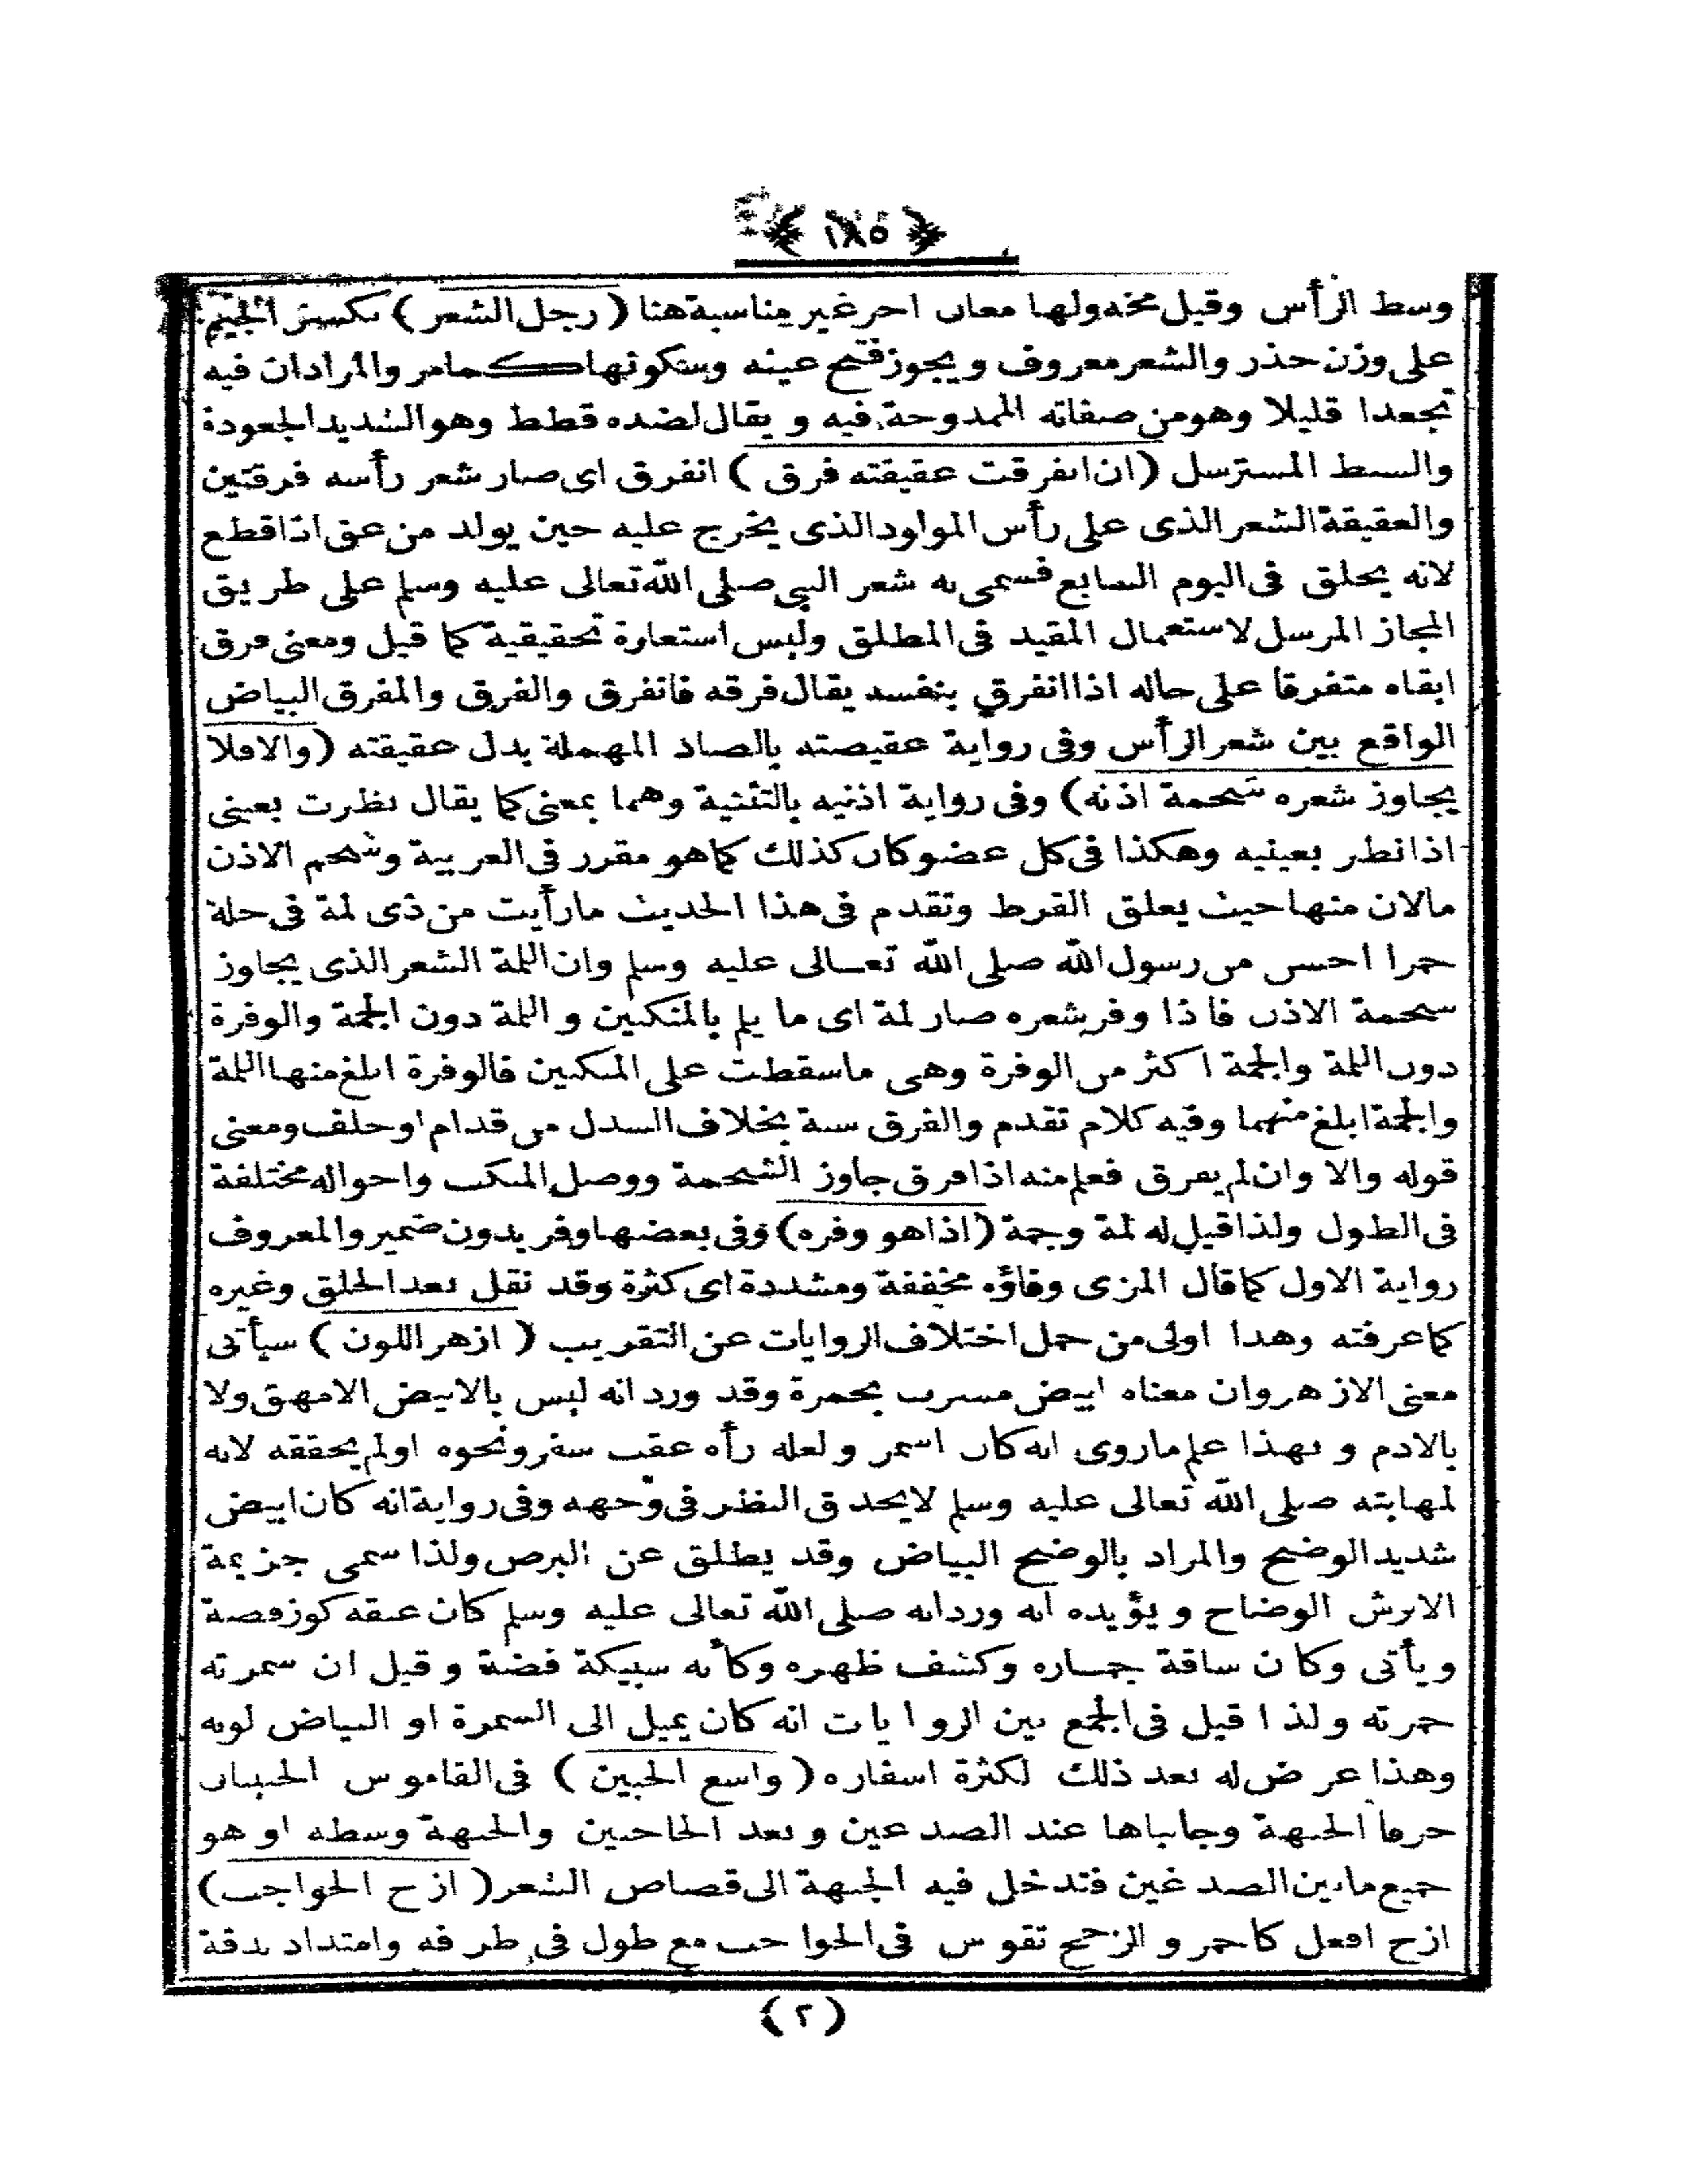 ﴿ ١٨٥ ﴾
وسط الرأس وقيل مخه ولها معان اخر غير مناسبة هنا ( رجل الشعر ) بكسر الجيم
على وزن حذر والشعر معروف ويجوز فتح عينه وسكونها كمامر والمراد ان فيه
تجعدا قليلا وهو من صفاته الممدوحة فيه ويقال لضده قطط وهو الشديد الجعودة
والسبط المسترسل (ان انفرقت عقيقته فرق ) انفرق اى صار شعر رأسه فرقتين
والعقيقة الشعر الذى على رأس المولود الذى يخرج عليه حين يولد من عق اذا قطع
لانه يحلق فى اليوم السابع فسمى به شعر النبى صلى الله تعالى عليه وسلم على طريق
المجاز المرسل لاستعمال المقيد فى المطلق وليس استعارة تحقيقية كما قيل ومعنى فرق
ابقاه متفرقا على حاله اذا انفرق بنفسه يقال فرقه فانفرق والفرق والمفرق البياض
الواقع بين شعر الرأس وفى رواية عقيصته بالصاد المهملة بدل عقيقته (والا فلا
يجاوز شعره شحمة اذنه) وفى رواية اذنيه بالتثنية وهما بمعنى كما يقال نظرت بعينى
اذا نظر بعينيه وهكذا فى كل عضو كان كذلك كما هو مقرر فى العربية وشحم الاذن
مالان منها حيث يعلق القرط وتقدم فى هذا الحديث ما رأيت من ذى لمة فى حلة
حمرا احسن من رسول الله صلى الله تعالى عليه وسلم وان اللمة الشعر الذى يجاوز
شحمة الاذن فاذا وفر شعره صار لمة اى ما يلم بالمنكبين واللمة دون الجمة والوفرة
دون اللمة والجمة اكثر من الوفرة وهى ما سقطت على المنكبين فالوفرة ابلغ منها اللمة
والجمة ابلغ منهما وفيه كلام تقدم والفرق سنة بخلاف السدل من قدام او خلف ومعنى
قوله والا وان لم يفرق فعلم منه اذا فرق جاوز الشحمة ووصل المنكب واحواله مختلفة
فى الطول ولذا قيل له لمة وجمة (اذا هو وفره) وفى بعضها وفر بدون ضمير والمعروف
رواية الاول كما قال المزى وفاؤه مخففة ومشددة اى كثرة وقد نقل بعد الحلق وغيره
كما عرفته وهذا اولى من حمل اختلاف الروايات عن التقريب ( ازهر اللون ) سيأتى
معنى الازهر وان معناه ابيض مشرب بحمرة وقد ورد انه ليس بالابيض الامهق ولا
بالادم وبهذا علم ماروى انه كان اسمر ولعله رأه عقب سفر ونحوه او لم يحققه لانه
لمهابته صلى الله تعالى عليه وسلم لا يحدق النظر فى وجهه وفى رواية انه كان ابيض
شديد الوضح والمراد بالوضح البياض وقد يطلق عن البرص ولذا سمى جزيمة
الابرش الوضاح ويؤيده انه ورد انه صلى الله تعالى عليه وسلم كان عنقه كوز فضة
ويأتى وكان ساقة جماره وكشف ظهره وكأنه سبيكة فضة وقيل ان سمرته
حمرته ولذا قيل فى الجمع بين الروايات انه كان يميل الى السمرة او البياض لونه
وهذا عرض له بعد ذلك لكثرة اسفاره ( واسع الجبين ) فى القاموس الجبينان
حرفا الجبهة وجانباها عند الصدغين وبعد الحاجبين والجبهة وسطه او هو
جميع ما بين الصدغين فتدخل فيه الجبهة الى قصاص الشعر ( ازج الحواجب )
ازج افعل كاحمر والزجج تقوس فى الحواجب مع طول فى طرفه وامتداد بدقة
( ٢ )